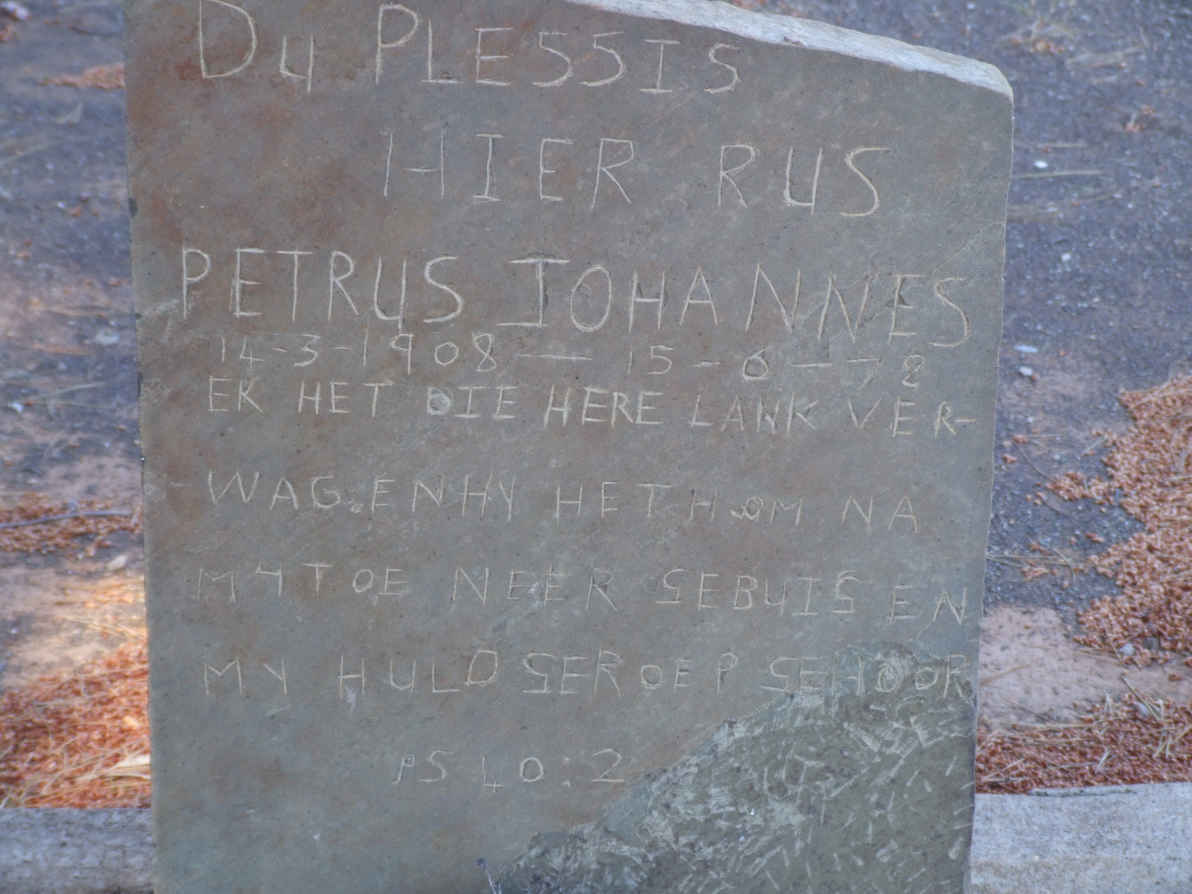 DU PLESSIS
HIER RUS
PETRUS JOHANNES
14-3-1908 — 15-6-78
EK HET DIE HERE LANK VER-
WAG.EN HY HET HOM NA
MY TOE NEER SEBUIS EN
MY HULD SEROEP SEHOOR
PS 40:2